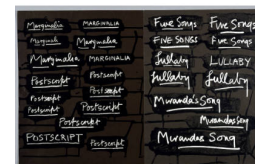 Marginalia MARGINALIA
Marginalia Marginalia
Marginalia MARGINALIA
Postscript Postscript
Postscript Postscript
Postscript Postscript
Postscript
POSTSCRIPT Postscript
Five Songs Five Songs
FIVE SONGS Five Songs
Lullaby LULLABY
Lullaby Lullaby
Miranda's Song
Miranda's Song
Miranda's Song